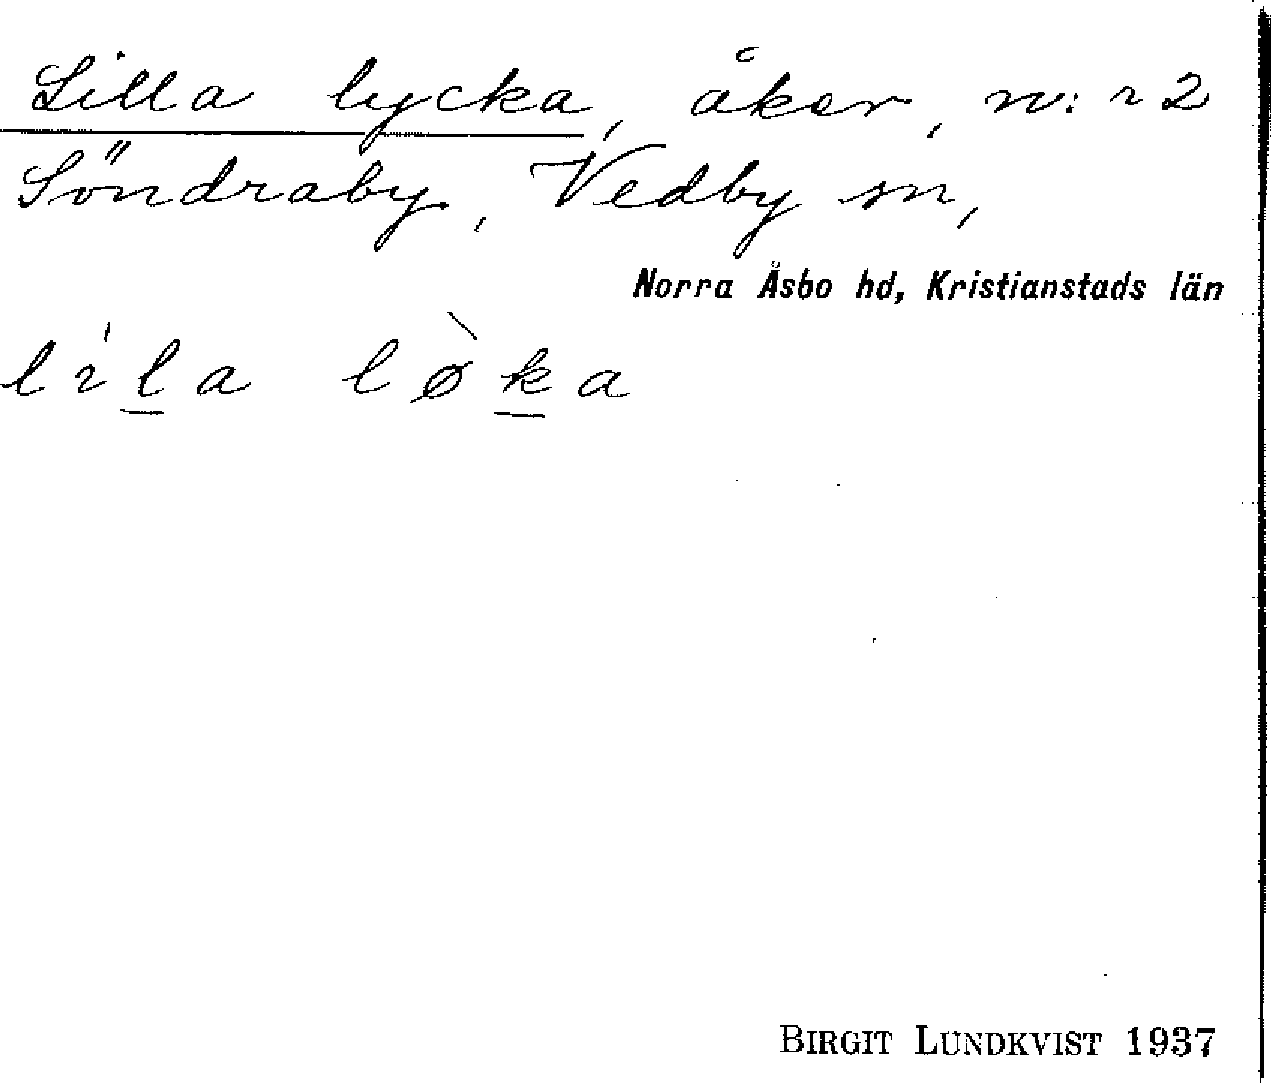 Lilla lycka, åker, n:r 2
Söndraby, Vedby sn,
Norra Åsbo hd, Kristianstads län
líḻa lø̀ḵa
BIRGIT LUNDKVIST 1937